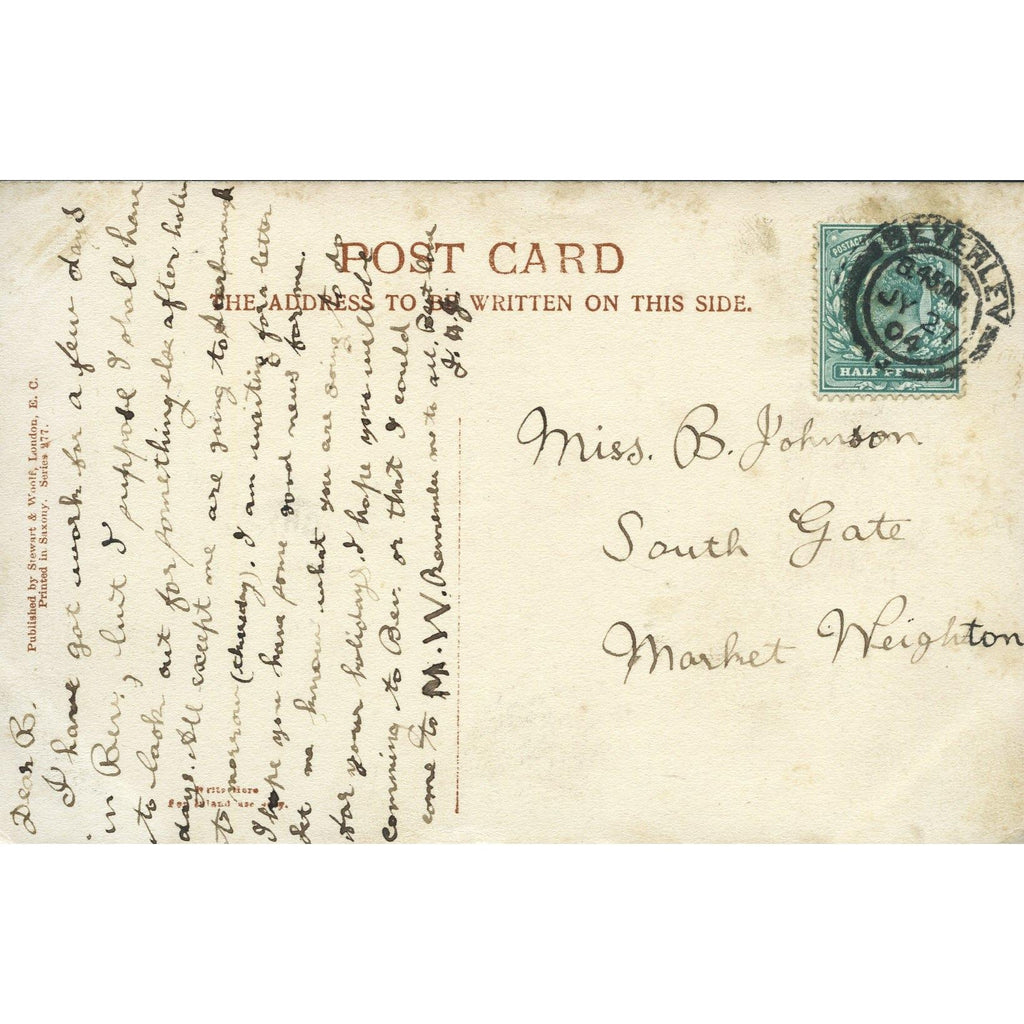 POST CARD
THE ADDRESS TO BE WRITTEN ON THIS SIDE.
Published by Stewart & Woolf, London, E. C.
Printed in Saxony. Series 277.
Write Here
For Inland use only.
POSTAGE
HALFPENNY
BEVERLEY
JY 27
04
Miss. B. Johnson
South Gate
Market Weighton
Dear B.
I have got work for a few days
in Bev, but I suppose I shall have
to look out for something else after holi
days. All except me are going to
to morrow (thursday). I am waiting for a letter
I hope you have some good news for me.
Let me know what you are doing
for your holiday, I hope you will be
comming to Bev. or that I could
come to M. W. Remember me to all. Best